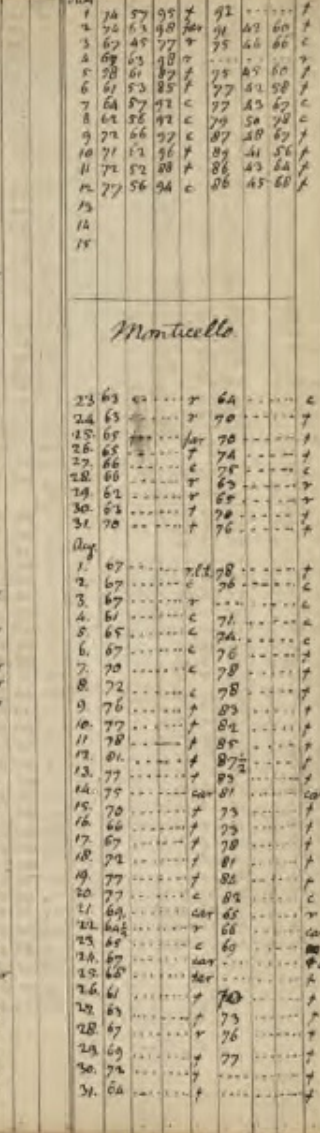 1 74 57 95 f 92 ....
2 74 63 98 far 91 42 60 f
3 67 45 77 r 75 46 66 c
4 69 63 98 r .... r
5 78 61 87 f 75 45 60 f
6 61 53 85 f 77 42 58 f
7 64 57 92 c 77 43 67 c
8 62 56 92 c 79 50 78 c
9 72 66 97 c 87 48 67 f
10 71 62 96 f 89 41 56 f
11 72 52 88 f 86 43 64 f
12 77 56 94 c 86 45 68 f
13
14
15
Monticello
23 63 .... r 64 .... c
24 63 .... r 70 .... f
25. 65 .... far 70 .... f
26. 65 .... f 74 .... f
27. 66 .... c 75 .... c
28. 66 .... r 63 .... r
29. 62 .... r 65 .... r
30. 63 .... f 70 .... f
31. 70 .... f 76 .... f
Aug.
1. 67 .... 78 .... f
2. 67 .... c 76 .... c
3. 67 .... r .... c
4. 61 .... c 71. .... c
5. 65 .... c 74. .... c
6. 67 .... c 76 .... f
7. 70 .... c 78 .... f
8. 72 .... c 78 .... f
9. 76 .... f 83 .... f
10. 77 .... f 82 .... f
11 78 .... f 85 .... f
12. 81. .... f 87½ .... f
13. 77 .... f 83 .... f
14. 75 .... car 81 .... ca
15. 70 .... f 73 .... f
16. 66 .... f 73 .... f
17. 67 .... f 78 .... f
18. 72 .... f 81 .... f
19. 77 .... f 82 .... f
20. 77 .... c 82 .... c
21. 69. .... car 65 .... r
22. 64½ .... r 66 .... ca
23. 65 .... c 69 ....
24. 67 .... car .... f.
25. 66 .... far .... f
26. 61 .... f 70 .... f
27. 63 .... f 73 .... f
28. 67 .... r 76 .... f
29. 69 .... f 77 .... f
30. 72 .... f .... f
31. 64 .... f .... f